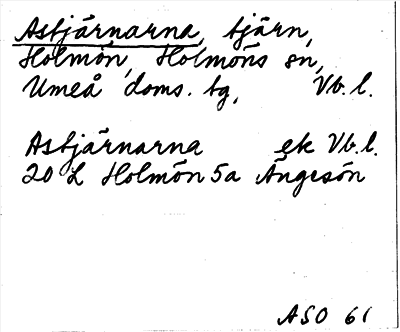 Astjärnarna, tjärn,
Holmön, Holmöns sn,
Umeå doms. tg, Vb. l.
Astjärnarna ek Vb. l.
20 L Holmön 5a Ängesön
ASO 61